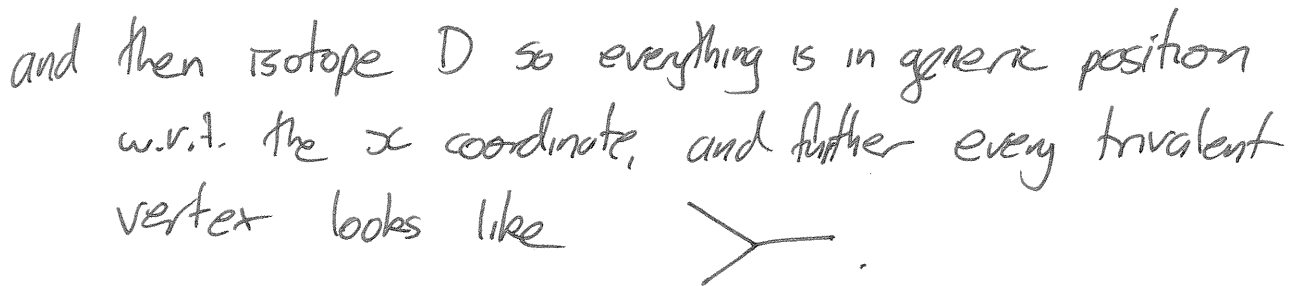 and then isotope D so everything is in generic position
w.r.t. the x coordinate, and further every trivalent
vertex looks like .